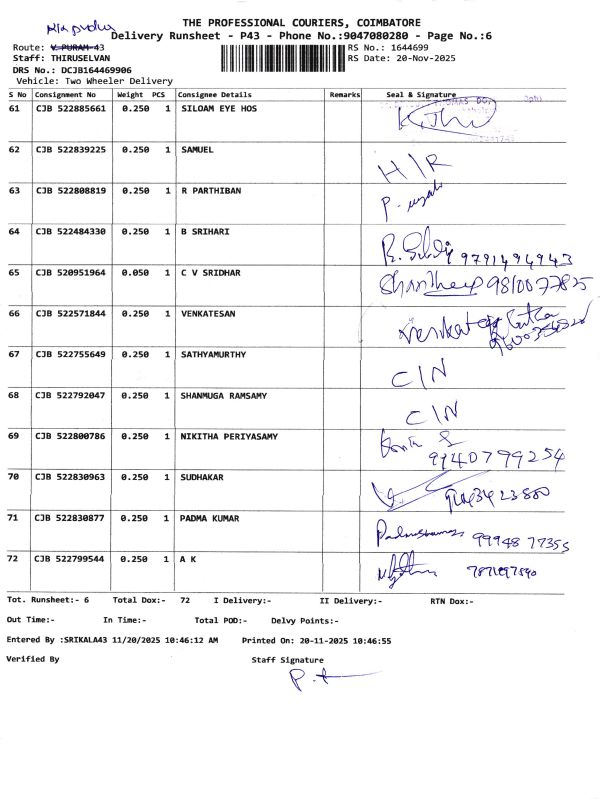 THE PROFESSIONAL COURIERS, COIMBATORE
Delivery Runsheet - P43 - Phone No.:9047080280 - Page No.:6
Route: V-PURAM-43
RS No.: 1644699
Staff: THIRUSELVAN
RS Date: 20-Nov-2025
DRS No.: DCJB164469906
Vehicle: Two Wheeler Delivery
S No Consignment No Weight PCS Consignee Details Remarks Seal & Signature
61 CJB 522885661 0.250 1 SILOAM EYE HOS
62 CJB 522839225 0.250 1 SAMUEL H/R
63 CJB 522808819 0.250 1 R PARTHIBAN
64 CJB 522484330 0.250 1 B SRIHARI 9791494943
65 CJB 520951964 0.050 1 C V SRIDHAR 9810077825
66 CJB 522571844 0.250 1 VENKATESAN
67 CJB 522755649 0.250 1 SATHYAMURTHY C/N
68 CJB 522792047 0.250 1 SHANMUGA RAMSAMY C/N
69 CJB 522800786 0.250 1 NIKITHA PERIYASAMY 9940799254
70 CJB 522830963 0.250 1 SUDHAKAR
71 CJB 522830877 0.250 1 PADMA KUMAR 9994877355
72 CJB 522799544 0.250 1 A K
Tot. Runsheet:- 6 Total Dox:- 72 I Delivery:- II Delivery:- RTN Dox:-
Out Time:- In Time:- Total POD:- Delvy Points:-
Entered By :SRIKALA43 11/20/2025 10:46:12 AM Printed On: 20-11-2025 10:46:55
Verified By Staff Signature